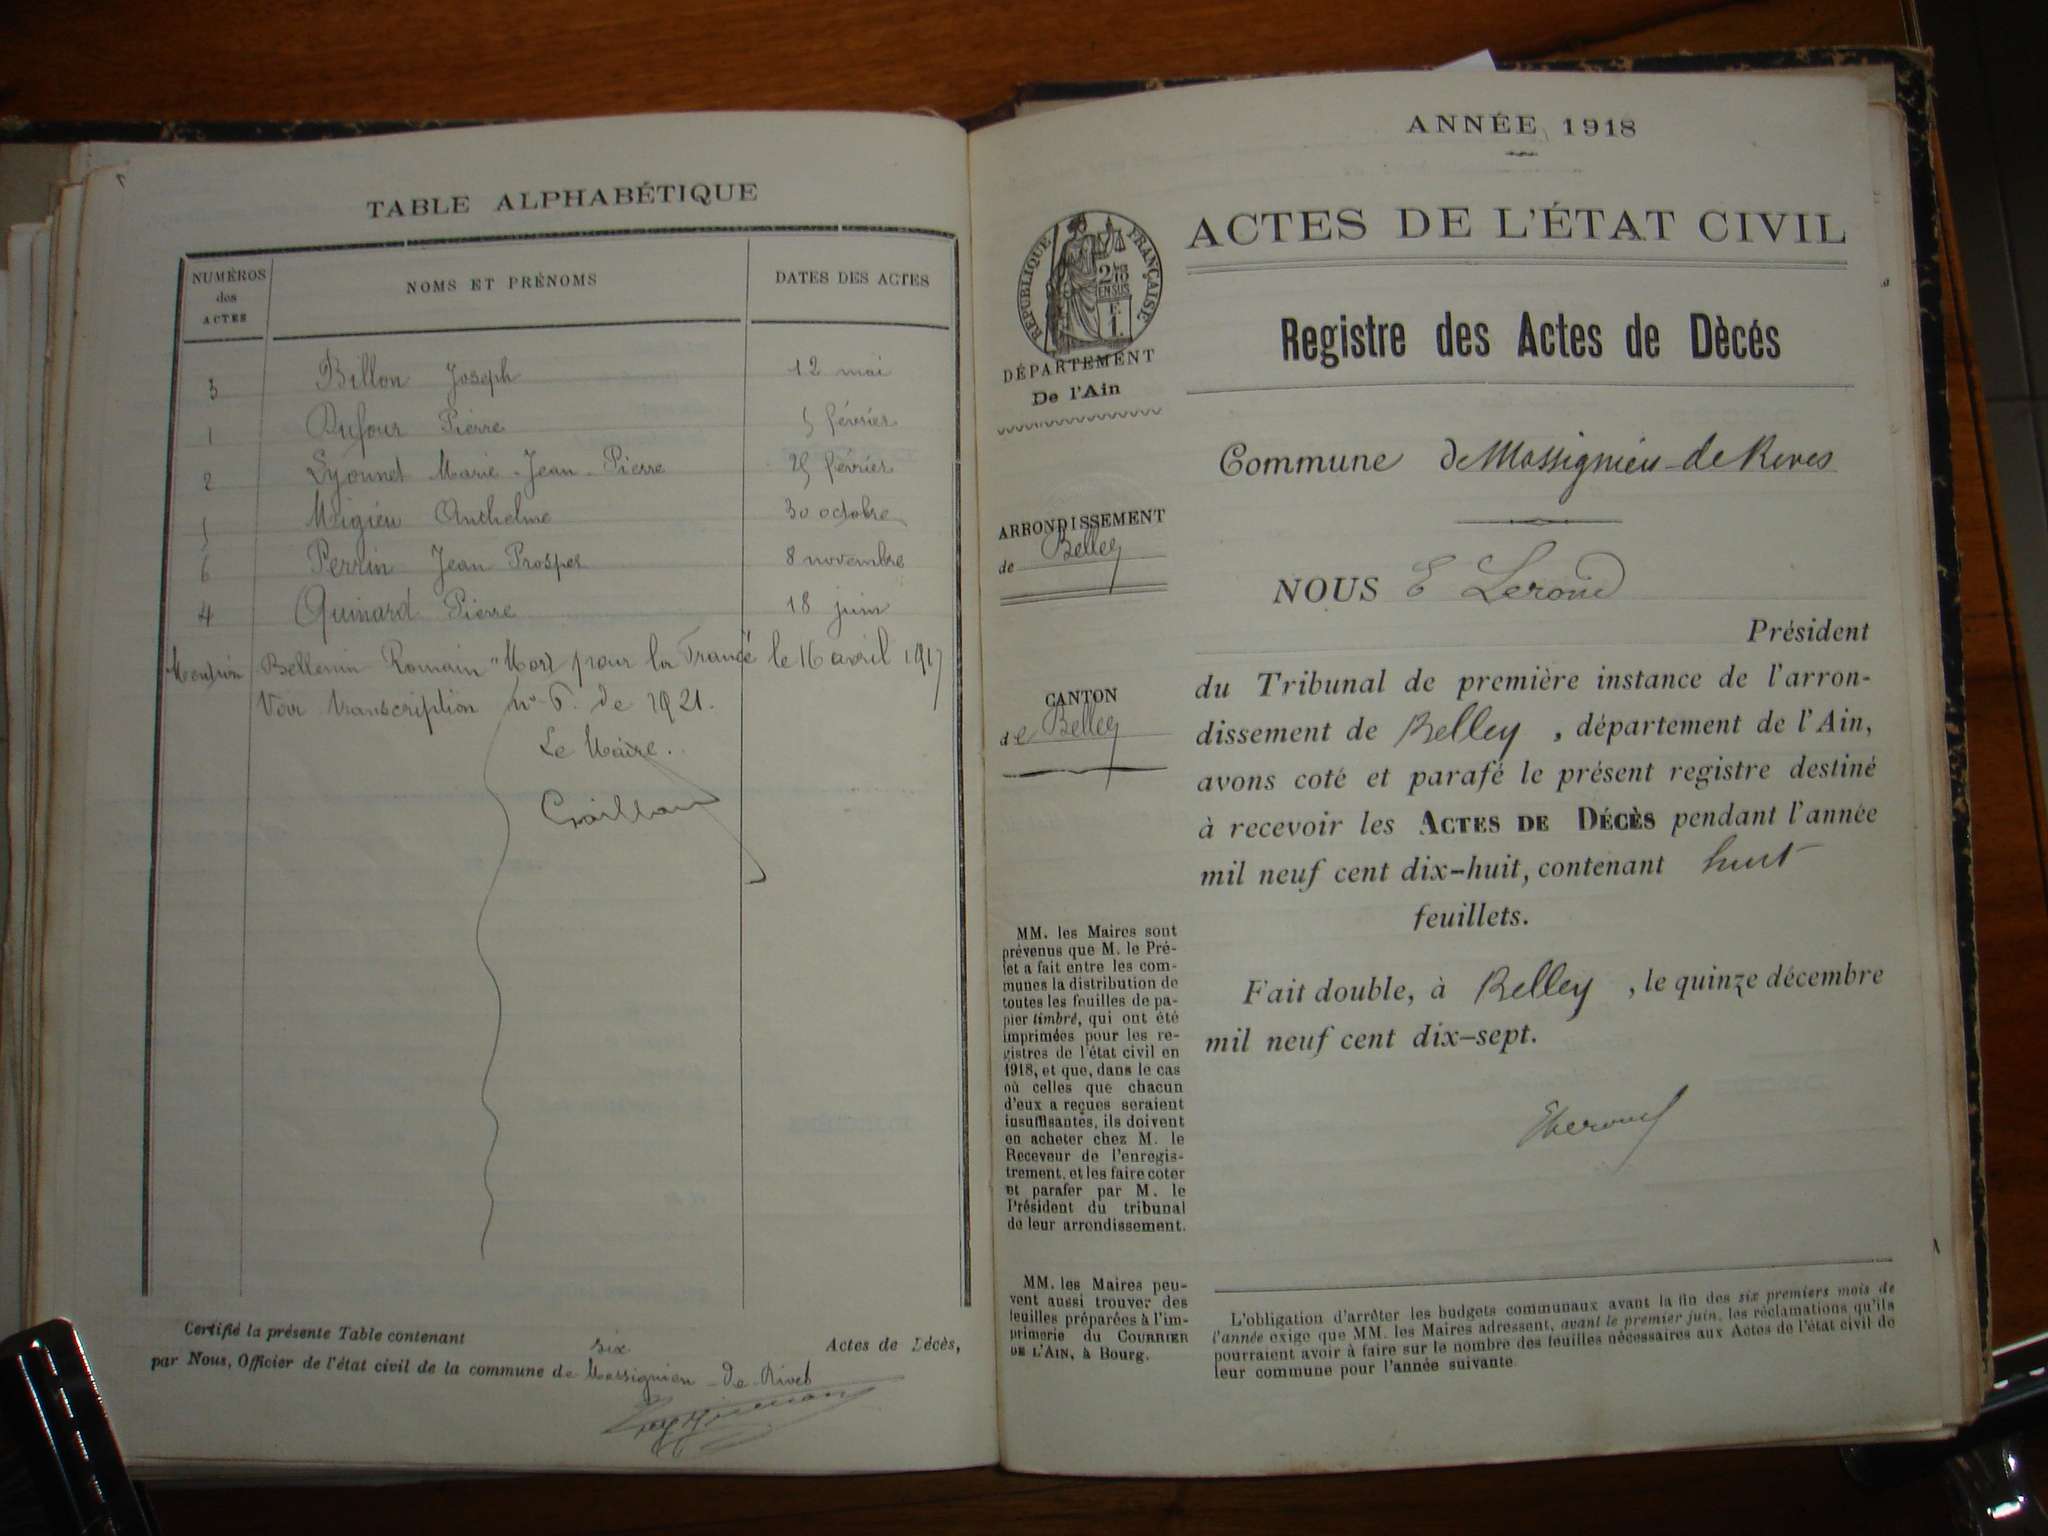 TABLE ALPHABÉTIQUE
NUMÉROS
des
ACTES
NOMS ET PRÉNOMS
DATES DES ACTES
3 Billon Joseph 12 mai
1 Dufour Pierre 5 février
2 Lyonnet Marie-Jean-Pierre 25 février
5 Migieu Anthelme 30 octobre
6 Perrin Jean Prosper 8 novembre
4 Quinard Pierre 18 juin
Mention Bellemin Romain "Mort pour la France" le 16 avril 1917
Voir transcription no 6. de 1921.
Le Maire.
Certifié la présente Table contenant six Actes de Décès,
par Nous, Officier de l'état civil de la commune de Massignieu-de-Rives
ANNÉE 1918
RÉPUBLIQUE FRANÇAISE
2/10
EN SUS
F.
1.
DÉPARTEMENT
De l'Ain
ARRONDISSEMENT
de Belley
CANTON
de Belley
MM. les Maires sont
prévenus que M. le Pré-
fet a fait entre les com-
munes la distribution de
toutes les feuilles de pa-
pier timbré, qui ont été
imprimées pour les re-
gistres de l'état civil en
1918, et que, dans le cas
où celles que chacun
d'eux a reçues seraient
insuffisantes, ils doivent
en acheter chez M. le
Receveur de l'enregis-
trement, et les faire coter
et parafer par M. le
Président du tribunal
de leur arrondissement.
MM. les Maires peu-
vent aussi trouver des
feuilles préparées à l'im-
primerie du COURRIER
DE L'AIN, à Bourg.
ACTES DE L'ÉTAT CIVIL
Registre des Actes de Dècés
Commune de Massignieu-de-Rives
NOUS E Leroud
Président
du Tribunal de première instance de l'arron-
dissement de Belley, département de l'Ain,
avons coté et parafé le présent registre destiné
à recevoir les ACTES DE DÉCÈS pendant l'année
mil neuf cent dix-huit, contenant huit
feuillets.
Fait double, à Belley, le quinze décembre
mil neuf cent dix-sept.
L'obligation d'arrêter les budgets communaux avant la fin des six premiers mois de
l'année exige que MM. les Maires adressent, avant le premier juin, les réclamations qu'ils
pourraient avoir à faire sur le nombre des feuilles nécessaires aux Actes de l'état civil de
leur commune pour l'année suivante.